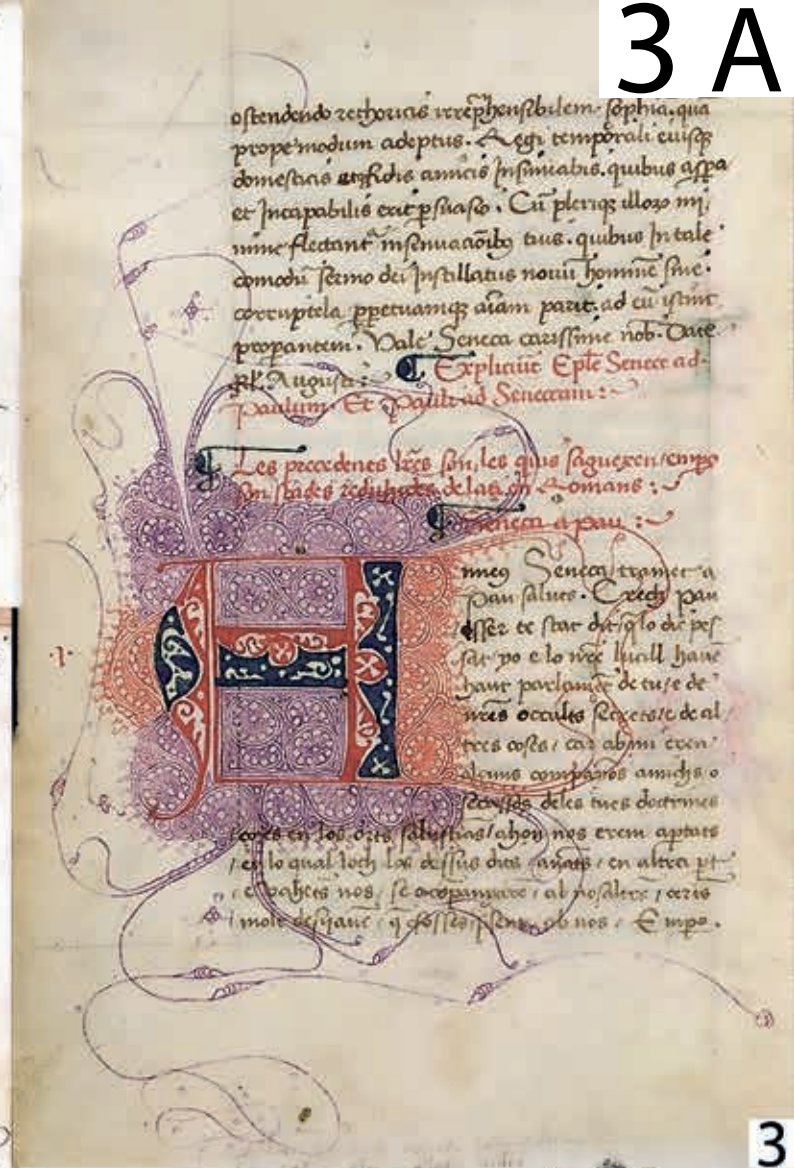 3 A
ostendendo rethoricis irrep̄hensibilem. sophia. qua
propemodum adeptus. Regi temporali eiusq̨
domesticis atq̨ fidis amicis Insinuabis. quibus asp̄a
et Incapabilis erit p̱suasio. Cū pleriq̨
mīme flectant᷑ tuis. quibus In tale
comodū sermo dei Instillatus nouū hominē sine
corruptela p̱petuamq̨ aīam parit. ad eū
propantem. Vale Seneca carissime nob. Date
kł. Augusti:
Expliciūt Epłe Senece ad
Paulum. Et Pauli ad Senecam:
Les precedents lr̄es son, les quis saguexen empo
son stades reduhides de latī en Romans:
Seneca a pau:
A
nneq̨ Seneca tramet a
Pau saluts. Crech pau
esser te stat dit q̄ lo die pes
sat yo e lo nr̄e lucill hauē
haut parlamēt de tu, e de
nr̄es occults secrets, e de al
tres coses, car ab mi eren
alcuns companyōs amichs o
deles tues doctrines
en los orts salustiās, ahon nos erem aptats
en lo qual loch los dessus dits, en altra pt
nos, se acōpanyarē, ab nosaltres,
molt desijauē, q̄ fosses p̄sent, ab nos, Empo.
3